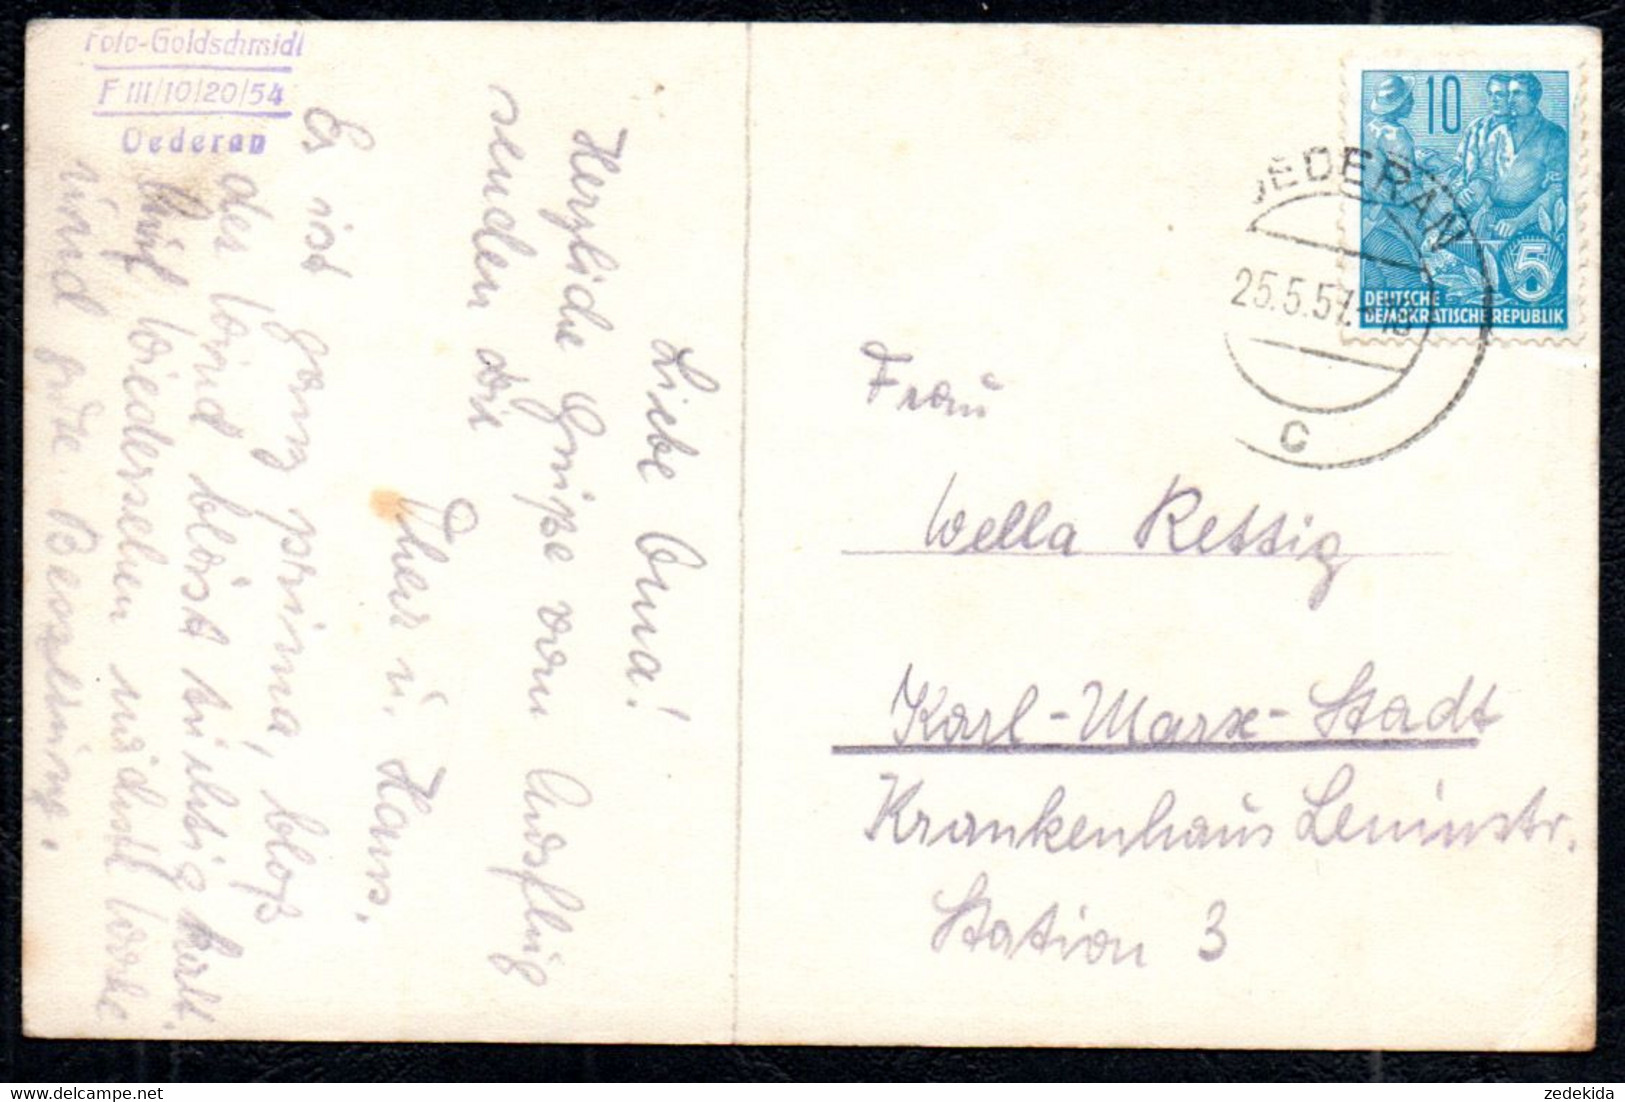 Foto-Goldschmidt
F III/10/20/54
Oederan
Liebe Oma!
Herzliche Grüße vom Ausflug
senden dir
u. Hans.
Es ist ganz prima, bloß
der Wind bläst tüchtig kalt.
Auf Wiedersehen nächste Woche
und gute Besserung.
10
DEUTSCHE
DEMOKRATISCHE REPUBLIK
5
OEDERAN
25.5.57
c
Frau
Wella Rettig
Karl-Marx-Stadt
Krankenhaus Leninstr.
Station 3
zedekida